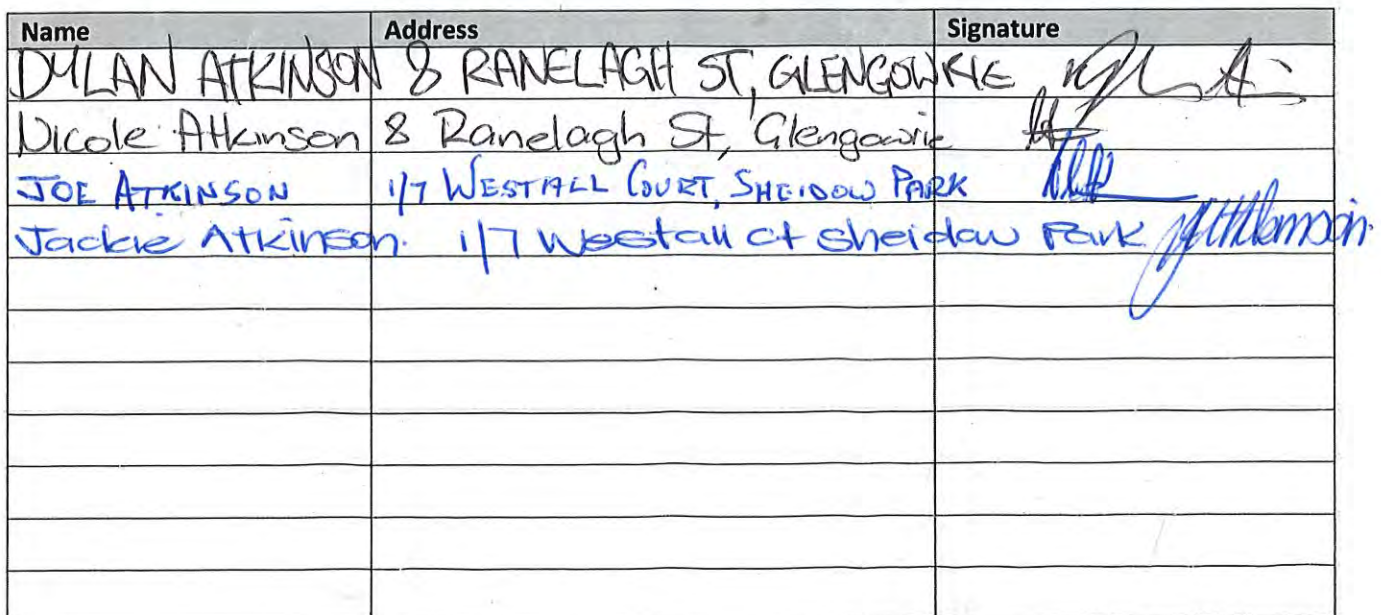 Name Address Signature
DYLAN ATKINSON 8 RANELAGH ST, GLENGOWRIE
Nicole Atkinson 8 Ranelagh St, Glengowrie
JOE ATKINSON 1/7 WESTALL COURT, SHEIDOW PARK
Jackie Atkinson. 1/7 Westall ct sheidow Park